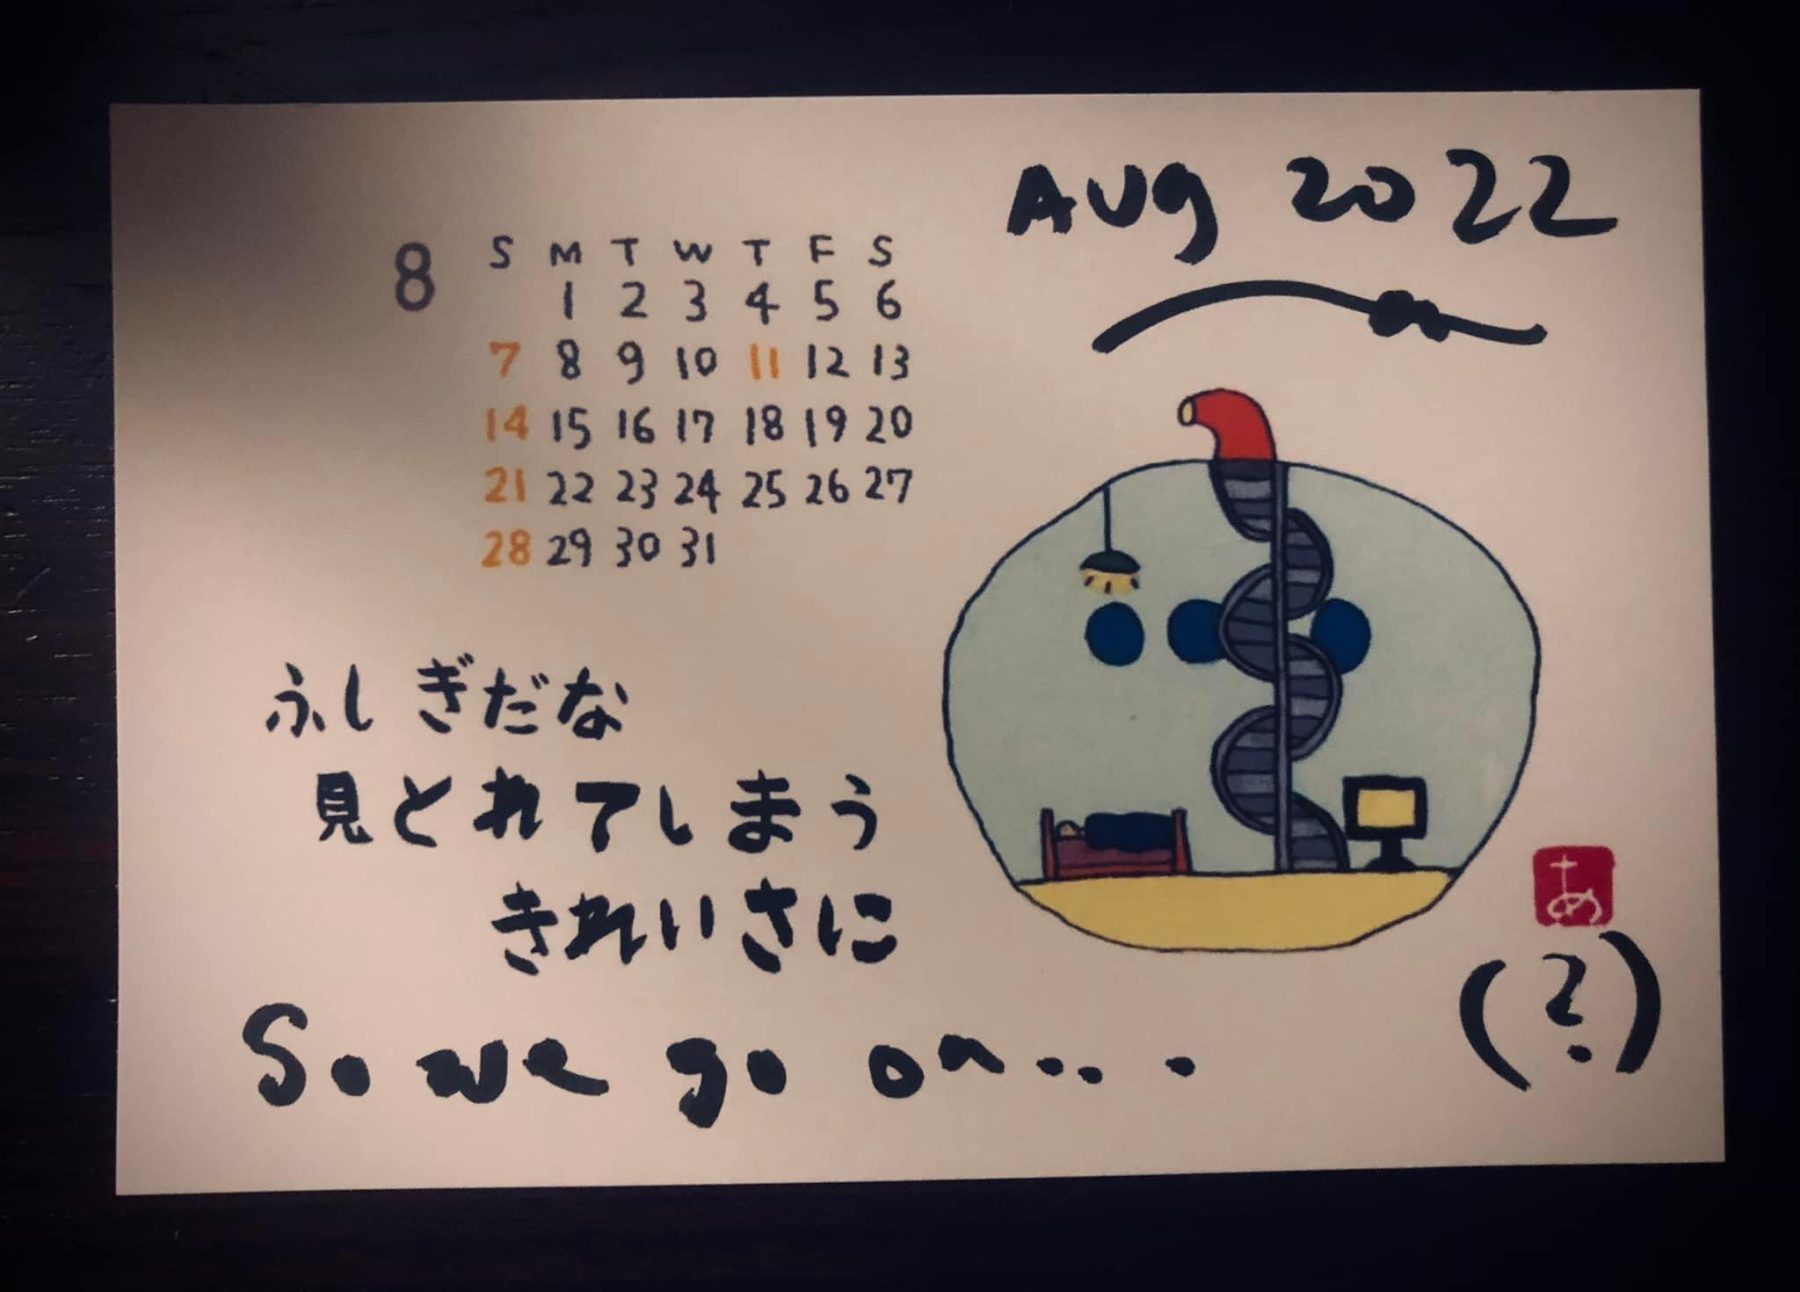 Aug 2022
8
S M T W T F S
1 2 3 4 5 6
7 8 9 10 11 12 13
14 15 16 17 18 19 20
21 22 23 24 25 26 27
28 29 30 31
ふしぎだな
見とれてしまう
きれいさに
あ
(?)
So we go on....